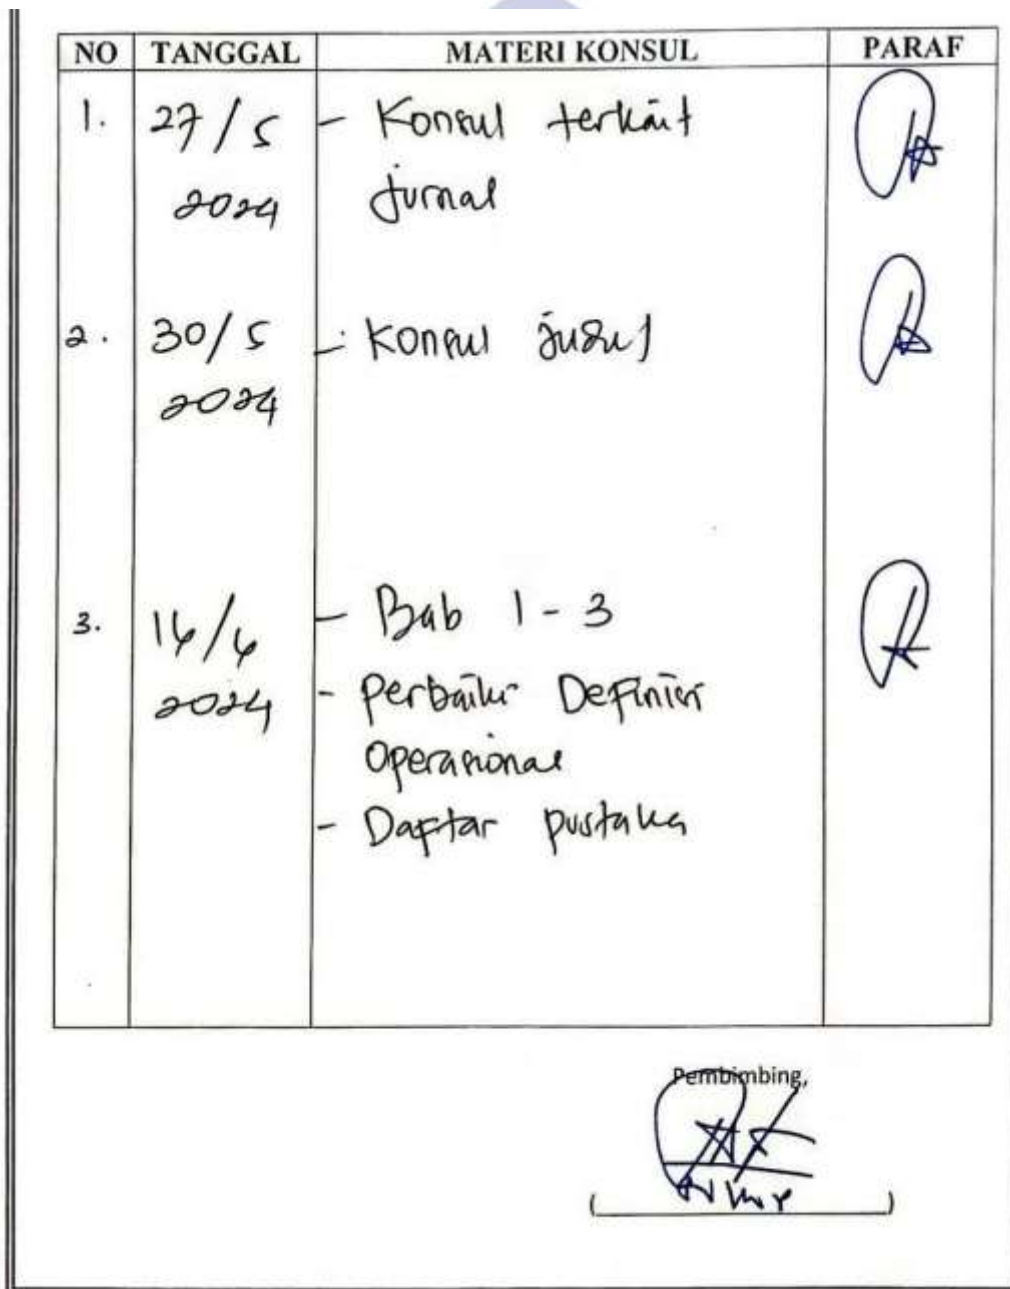 NO TANGGAL MATERI KONSUL PARAF
1. 27/5 - Konsul terkait
2024 jurnal
2. 30/5 - Konsul judul
2024
3. - Bab 1-3
2024 - Perbaiki Definisi
Operasional
- Daftar pustaka
Pembimbing,
( )